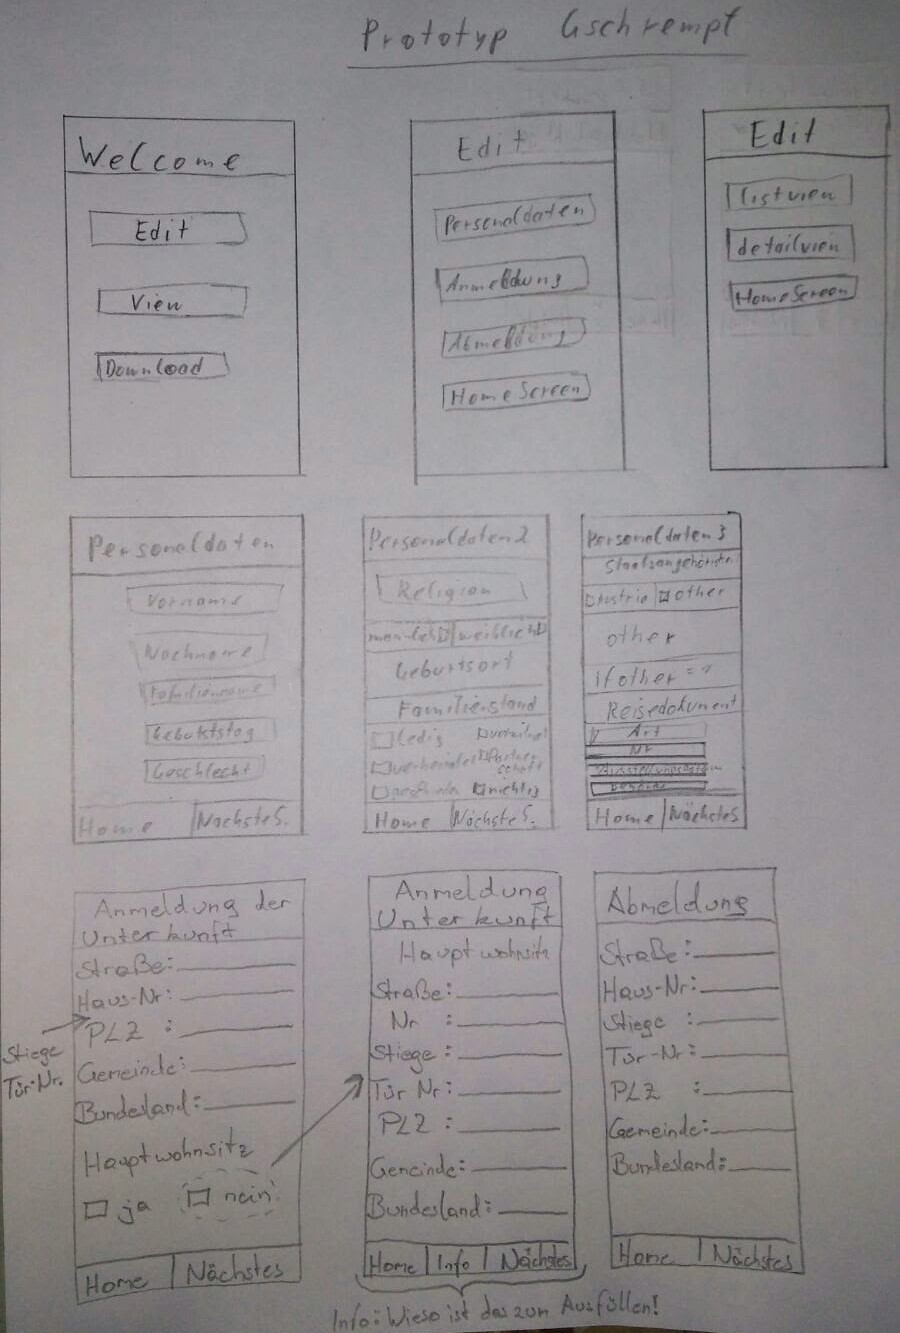 Prototyp Gschrempf
Welcome
Edit
View
Download
Edit
Personaldaten
Anmeldung
Abmeldung
HomeScreen
Edit
listview
detailview
HomeScreen
Personaldaten
Vorname
Nachname
Familienname
Geburtstag
Geschlecht
Home Nächste S.
Personaldaten 2
Religion
männlich weiblich
Geburtsort
Familienstand
ledig
verheiratet
nichtig
Home Nächste S.
Personaldaten 3
Austria other
other
if other ==
Reisedokument
Art
Nr
Home Nächste S
Anmeldung der
Unterkunft
Straße:
Haus-Nr:
PLZ :
Gemeinde:
Bundesland:
Hauptwohnsitz
ja nein
Home Nächstes
Stiege
Tür-Nr.
Anmeldung
Unterkunft
Hauptwohnsitz
Straße:
Nr :
Stiege:
Tür Nr:
PLZ :
Gemeinde:
Bundesland:
Home Info Nächstes
Info: Wieso ist das zum Ausfüllen!
Abmeldung
Straße:
Haus-Nr:
Stiege :
Tür-Nr:
PLZ :
Gemeinde:
Bundesland:
Home Nächstes